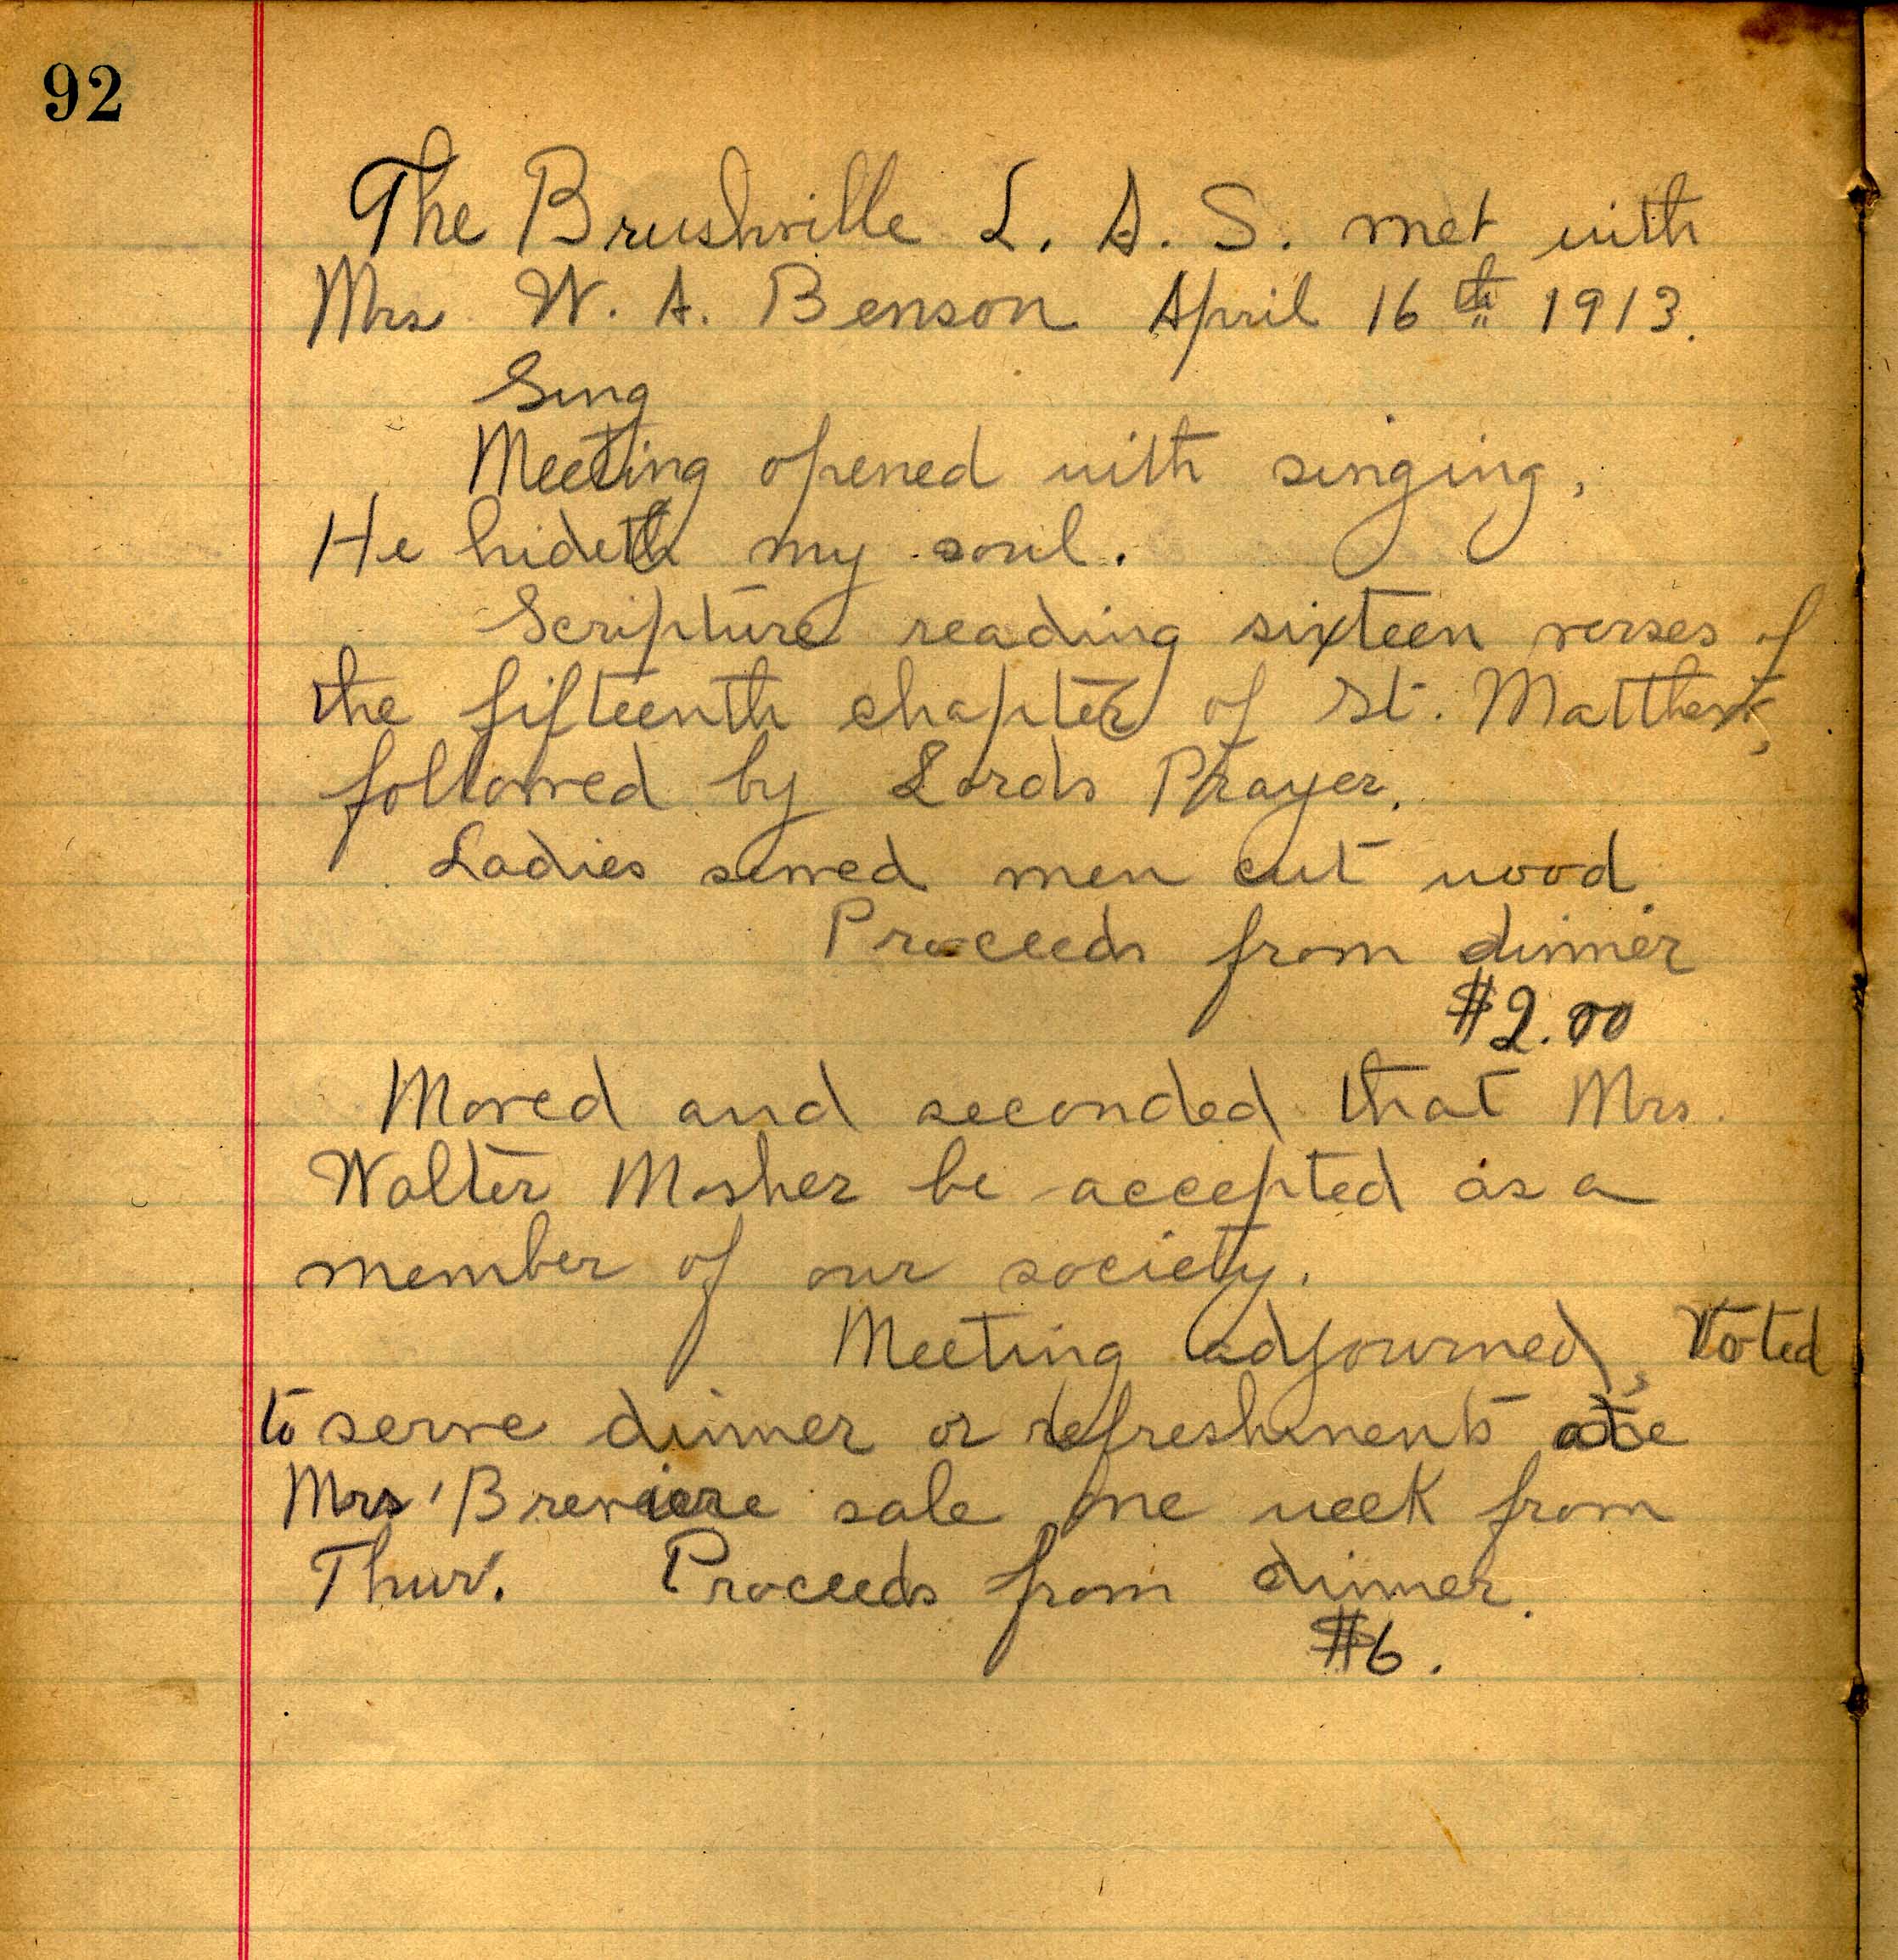 92
The Brushville L. A. S. met with
Mrs W. A. Benson April 16th 1913.
Sing
Meeting opened with singing,
He hideth my soul.
Scripture reading sixteen verses of
the fifteenth chapter of St. Matthew,
followed by Lords Prayer.
Ladies sewed men cut wood.
Proceeds from dinner
$2.00
Moved and seconded that Mrs.
Walter Mosher be accepted as a
member of our society.
Meeting adjourned, Voted
to serve dinner or refreshments at
Mrs sale one week from
Thur. Proceeds from dinner.
$6.